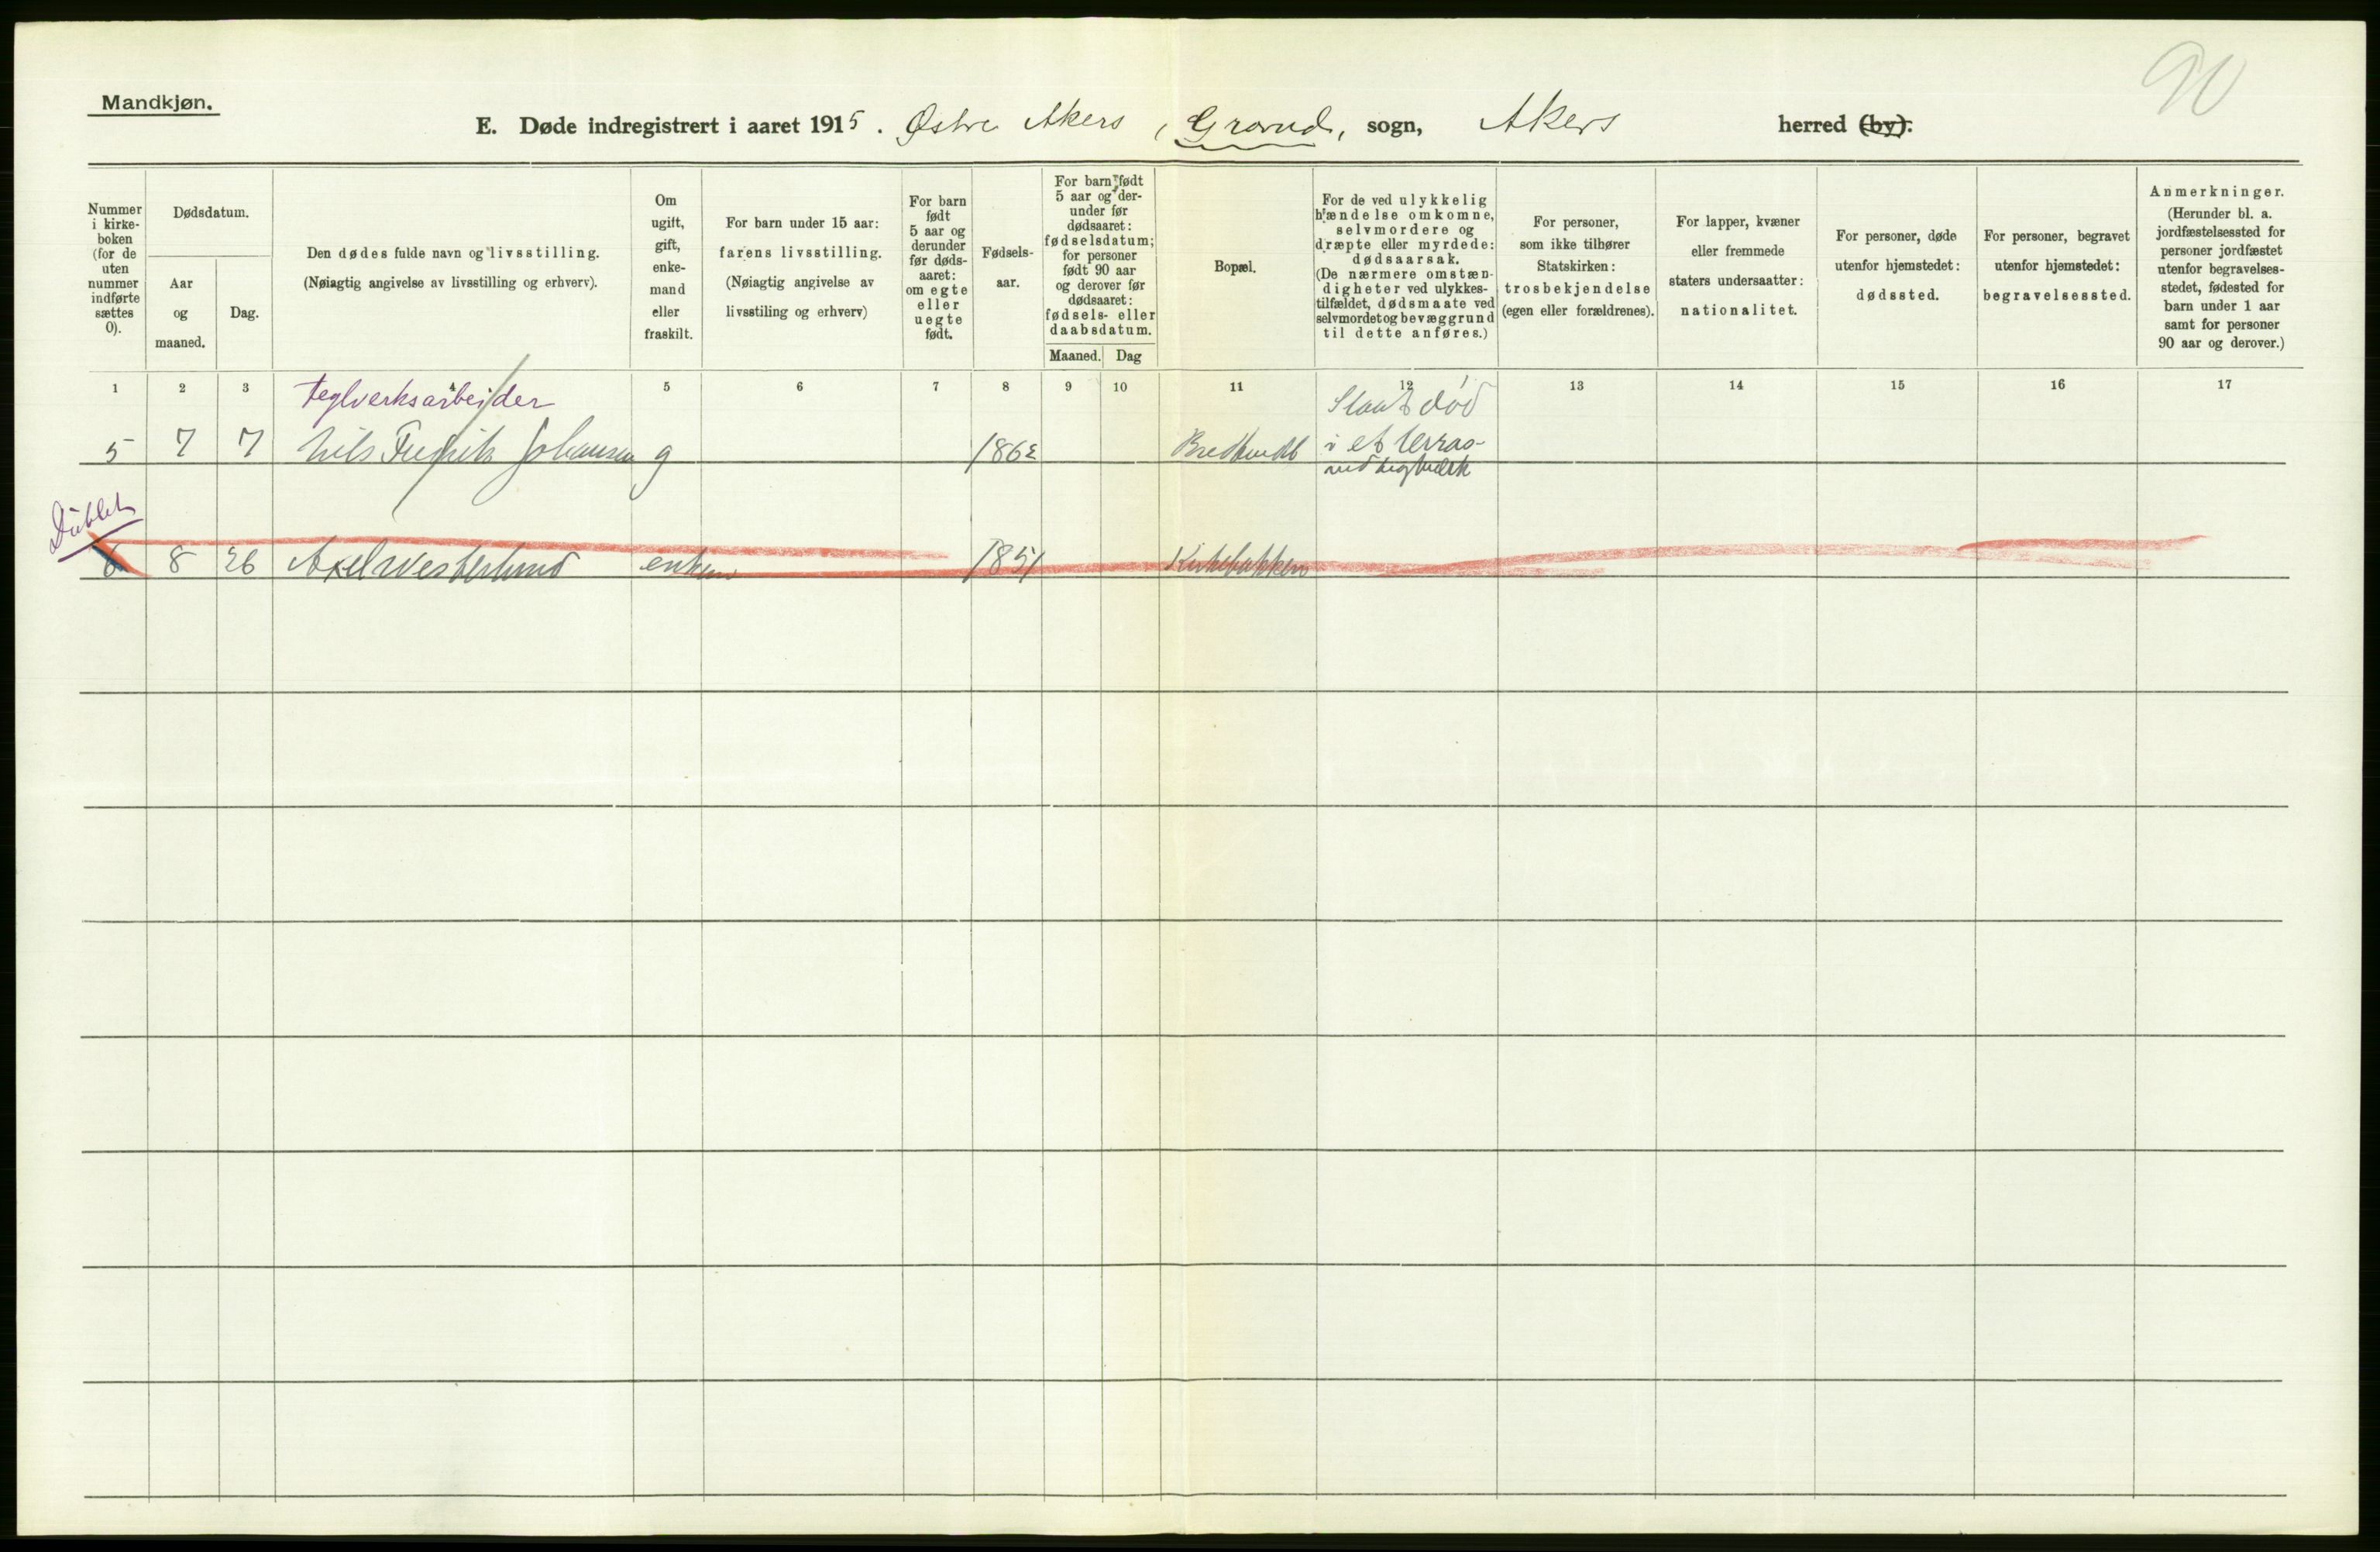 90
Mandkjøn.
E. Døde indregistrert i aaret 1915. Østre Akers, Grorud, sogn, Akers herred (by).
Nummer i kirke-boken (for de uten nummer indførte sættes 0).
Dødsdatum.
Aar og maaned.
Dag.
Den dødes fulde navn og livsstilling.
(Nøiagtig angivelse av livsstilling og erhverv).
Om ugift, gift, enke-mand eller fraskilt.
For barn under 15 aar:
farens livsstilling.
(Nøiagtig angivelse av livsstiling og erhverv)
For barn født 5 aar og derunder før døds-aaret: om egte eller uegte født.
Fødsels-aar.
For barn født 5 aar og der-under før dødsaaret: fødselsdatum; for personer født 90 aar og derover før dødsaaret: fødsels- eller daabsdatum.
Maaned. Dag
Bopæl.
For de ved ulykkelig hændelse omkomne, selvmordere og dræpte eller myrdede: dødsaarsak.
(De nærmere omstæn-digheter ved ulykkes-tilfældet, dødsmaate ved selvmordet og bevæggrund til dette anføres.)
For personer, som ikke tilhører Statskirken: trosbekjendelse (egen eller forældrenes).
For lapper, kvæner eller fremmede staters undersaatter: nationalitet.
For personer, døde utenfor hjemstedet: dødssted.
For personer, begravet utenfor hjemstedet: begravelsessted.
Anmerkninger.
(Herunder bl. a. jordfæstelsessted for personer jordfæstet utenfor begravelses-stedet, fødested for barn under 1 aar samt for personer 90 aar og derover.)
1 2 3 4 5 6 7 8 9 10 11 12 13 14 15 16 17
Teglverksarbeider
5 7 7 Nils Fredrik Johansen g 1862
i et
Dublet
6 8 26 Axel Westerlund enkem 1851 Kirkebakken